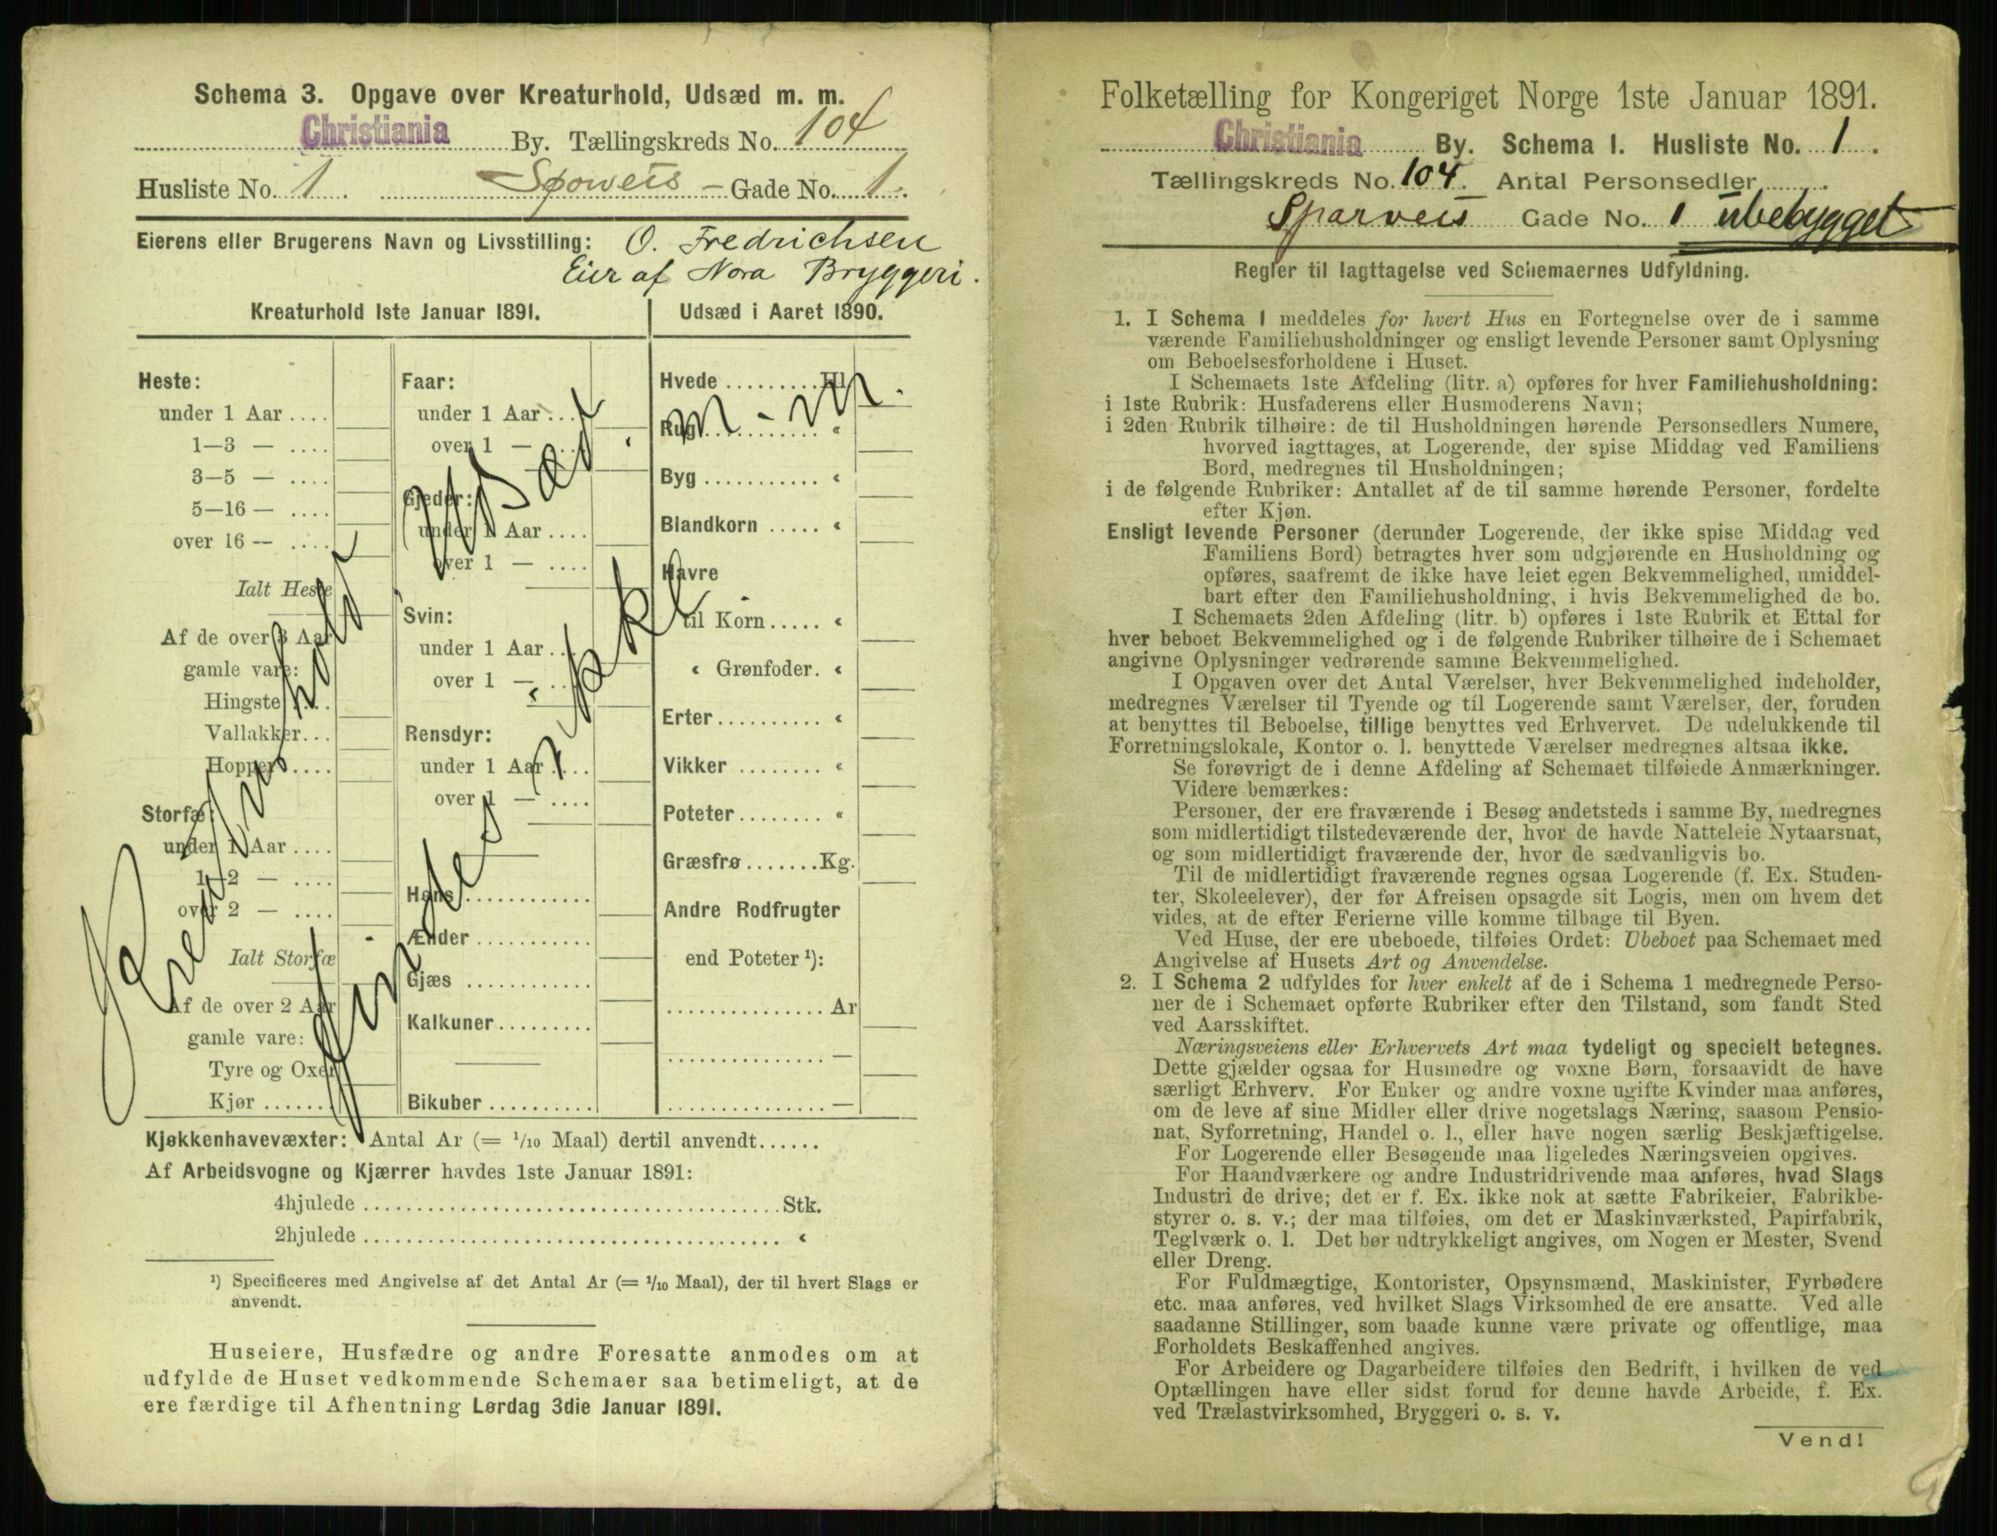 Schema 3. Opgave over Kreaturhold, Udsæd m. m.
Christiania By. Tællingskreds No. 104
Husliste No. 1. Sporveis - Gade No. 1.
Eierens eller Brugerens Navn og Livsstilling: O. Fredrichsen
Eier af Nora Bryggeri.
Kreaturhold 1ste Januar 1891.
Heste:
under 1 Aar ....
1—3 — ....
3—5 — ....
5—16 — ....
over 16 — ....
Ialt Heste
Af de over 3 Aar
gamle vare:
Hingste
Vallakker...
Hopper ....
Storfæ:
under 1 Aar ....
1—2 — ....
over 2 — ....
Ialt Storfæ
Af de over 2 Aar
gamle vare:
Tyre og Oxer
Kjør .......
Faar:
under 1 Aar ....
over 1 — ....
Gjeder:
under 1 Aar ....
over 1 — ....
Svin:
under 1 Aar ....
over 1 — ....
Rensdyr:
under 1 Aar ....
over 1 — ....
Høns ............
Ænder ...........
Gjæs ............
Kalkuner .........
Bikuber ..........
Udsæd i Aaret 1890.
Hvede ......... Hl.
Rug ............ «
Byg ............ «
Blandkorn ...... «
Havre
til Korn ..... «
« Grønfoder. «
Erter........... «
Vikker ......... «
Poteter ........ «
Græsfrø ....... Kg.
Andre Rodfrugter
end Poteter ¹):
............... Ar
............... —
............... —
Kreaturhold, Udsæd m-m.
findes ikke
Kjøkkenhavevæxter: Antal Ar (= 1/10 Maal) dertil anvendt......
Af Arbeidsvogne og Kjærrer havdes 1ste Januar 1891:
4hjulede ........ Stk.
2hjulede ........ «
¹) Specificeres med Angivelse af det Antal Ar (= 1/10 Maal), der til hvert Slags er
anvendt.
Huseiere, Husfædre og andre Foresatte anmodes om at
udfylde de Huset vedkommende Schemaer saa betimeligt, at de
ere færdige til Afhentning Lørdag 3die Januar 1891.
Folketælling for Kongeriget Norge 1ste Januar 1891.
Christiania By. Schema 1. Husliste No. 1.
Tællingskreds No. 104. Antal Personsedler ........
Sparveis Gade No. 1 ubebygget
Regler til Iagttagelse ved Schemaernes Udfyldning.
1. I Schema 1 meddeles for hvert Hus en Fortegnelse over de i samme
værende Familiehusholdninger og ensligt levende Personer samt Oplysning
om Beboelsesforholdene i Huset.
I Schemaets 1ste Afdeling (litr. a) opføres for hver Familiehusholdning:
i 1ste Rubrik: Husfaderens eller Husmoderens Navn;
i 2den Rubrik tilhøire: de til Husholdningen hørende Personsedlers Numere,
hvorved iagttages, at Logerende, der spise Middag ved Familiens
Bord, medregnes til Husholdningen;
i de følgende Rubriker: Antallet af de til samme hørende Personer, fordelte
efter Kjøn.
Ensligt levende Personer (derunder Logerende, der ikke spise Middag ved
Familiens Bord) betragtes hver som udgjørende en Husholdning og
opføres, saafremt de ikke have leiet egen Bekvemmelighed, umiddel-
bart efter den Familiehusholdning, i hvis Bekvemmelighed de bo.
I Schemaets 2den Afdeling (litr. b) opføres i 1ste Rubrik et Ettal for
hver beboet Bekvemmelighed og i de følgende Rubriker tilhøire de i Schemaet
angivne Oplysninger vedrørende samme Bekvemmelighed.
I Opgaven over det Antal Værelser, hver Bekvemmelighed indeholder,
medregnes Værelser til Tyende og til Logerende samt Værelser, der, foruden
at benyttes til Beboelse, tillige benyttes ved Erhvervet. De udelukkende til
Forretningslokale, Kontor o. l. benyttede Værelser medregnes altsaa ikke.
Se forøvrigt de i denne Afdeling af Schemaet tilføiede Anmærkninger.
Videre bemærkes:
Personer, der ere fraværende i Besøg andetsteds i samme By, medregnes
som midlertidigt tilstedeværende der, hvor de havde Natteleie Nytaarsnat,
og som midlertidigt fraværende der, hvor de sædvanligvis bo.
Til de midlertidigt fraværende regnes ogsaa Logerende (f. Ex. Studen-
ter, Skoleelever), der før Afreisen opsagde sit Logis, men om hvem det
vides, at de efter Ferierne ville komme tilbage til Byen.
Ved Huse, der ere ubeboede, tilføies Ordet: Ubeboet paa Schemaet med
Angivelse af Husets Art og Anvendelse.
2. I Schema 2 udfyldes for hver enkelt af de i Schema 1 medregnede Perso-
ner de i Schemaet opførte Rubriker efter den Tilstand, som fandt Sted
ved Aarsskiftet.
Næringsveiens eller Erhvervets Art maa tydeligt og specielt betegnes.
Dette gjælder ogsaa for Husmødre og voxne Børn, forsaavidt de have
særligt Erhverv. For Enker og andre voxne ugifte Kvinder maa anføres,
om de leve af sine Midler eller drive nogetslags Næring, saasom Pensio-
nat, Syforretning, Handel o. l., eller have nogen særlig Beskjæftigelse.
For Logerende eller Besøgende maa ligeledes Næringsveien opgives.
For Haandværkere og andre Industridrivende maa anføres, hvad Slags
Industri de drive; det er f. Ex. ikke nok at sætte Fabrikeier, Fabrikbe-
styrer o. s. v.; der maa tilføies, om det er Maskinværksted, Papirfabrik,
Teglværk o. l. Det bør udtrykkeligt angives, om Nogen er Mester, Svend
eller Dreng.
For Fuldmægtige, Kontorister, Opsynsmænd, Maskinister, Fyrbødere
etc. maa anføres, ved hvilket Slags Virksomhed de ere ansatte. Ved alle
saadanne Stillinger, som baade kunne være private og offentlige, maa
Forholdets Beskaffenhed angives.
For Arbeidere og Dagarbeidere tilføies den Bedrift, i hvilken de ved
Optællingen have eller sidst forud for denne havde Arbeide, f. Ex.
ved Trælastvirksomhed, Bryggeri o. s. v.
Vend!